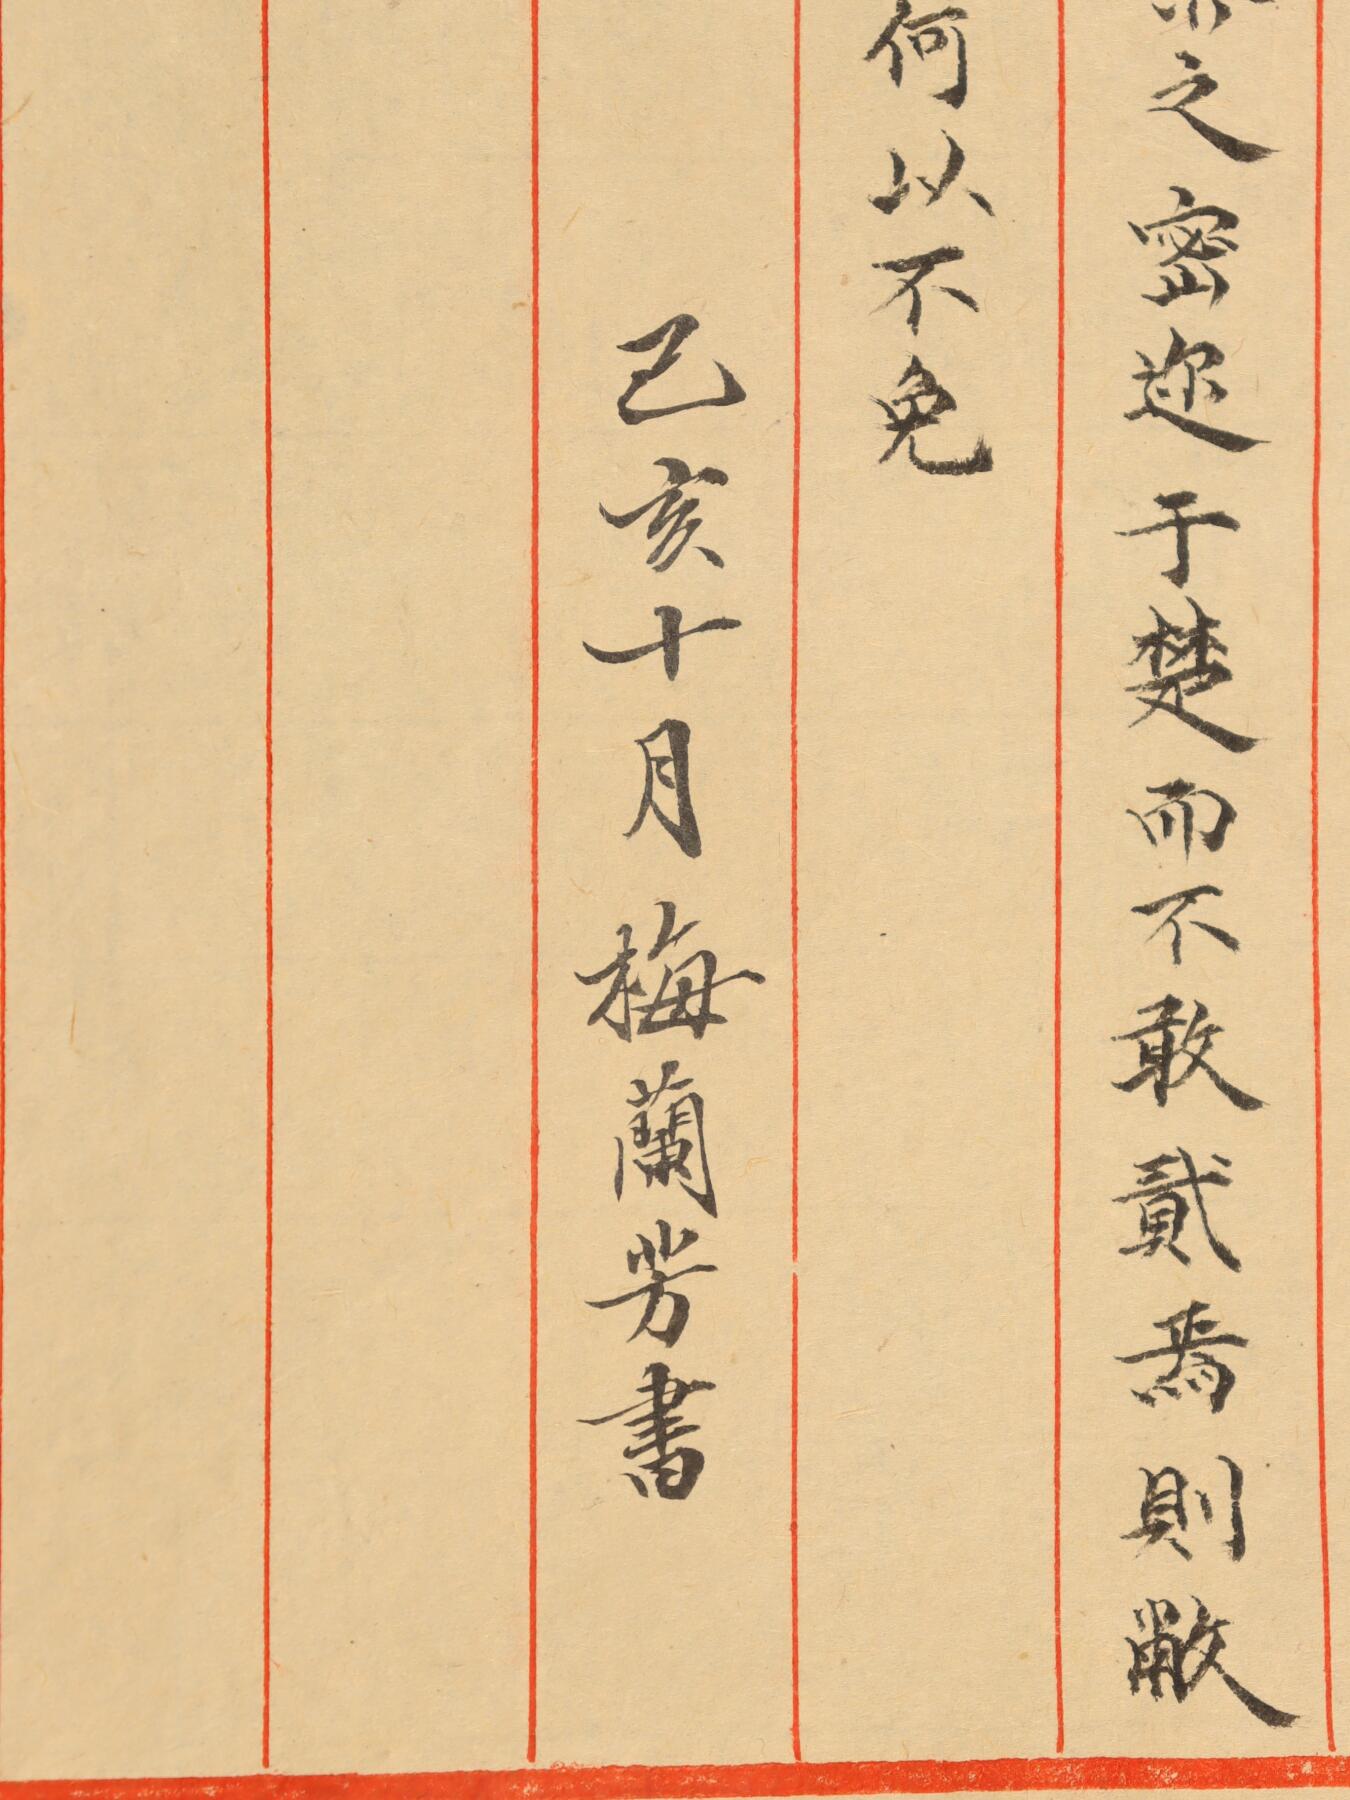 之密迩于楚而不敢貳焉則敝
何以不免
己亥十月梅蘭芳書